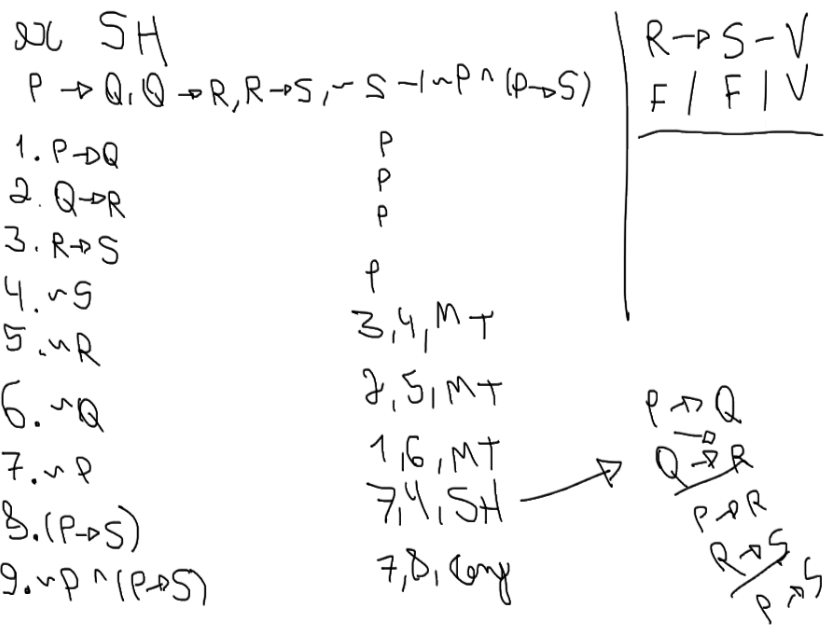 SH
P → Q, Q → R, R → S, ~ S ⊣ ~P ^ (P → S)
1. P → Q P
2. Q → R P
3. R → S P
4. ~S P
5. ~R 3,4, MT
6. ~Q 2,5, MT
7. ~P 1,6, MT
8. (P → S) 7,4, SH
9. ~P ^ (P → S) 7,8, Conj
R → S - V
F / F | V
P → Q
→
Q → R
P → R
R → S
P → S